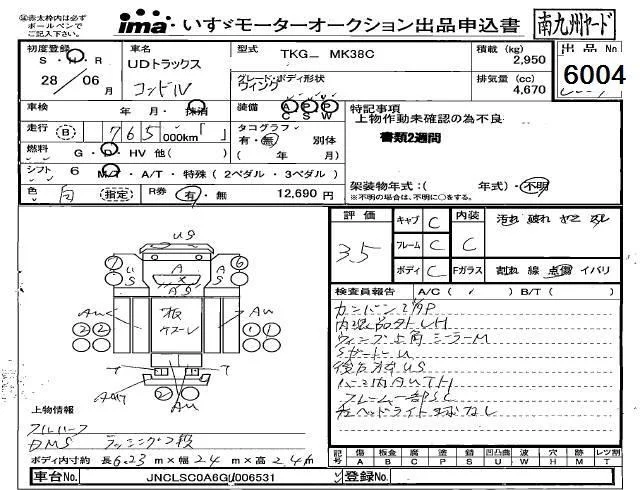 ※赤太枠内は必ず
ボールペンで
ご記入下さい。
ima いすゞモーターオークション出品申込書
南九州ヤード
初度登録
S・H・R
28 / 06 月
車名
UDトラックス
コンドル
型式
TKG_ MK38C
グレード・ボディ形状
ウィング
積載 (kg)
2,950
排気量 (cc)
4,670
出品No
6004
車検
年 月・抹消
装備
A P P
C S W
特記事項
上物作動未確認の為不良
書類2週間
走行 B 765,000km「 」
タコグラフ
有・無 別体
( 年 月)
燃料 G・D・HV 他( )
シフト 6 MT・A/T・特殊(2ペダル・3ペダル)
色 白 指定
R券 有・無 12,690 円
架装物年式:( 年式)・不明
※不明の場合は、不明に○をする。
評価
3.5
キャブ C
フレーム C
ボディ C
内装 C
Fガラス
汚れ 破れ ヤニ
割れ 線 点傷 イバリ
検査員報告 A/C( ) B/T( )
US
US
A
AS
板
Au
Au
Au
ウィング上角シーラーM
後反方US
フレーム一部SC
上物情報
フルハーフ
DMS ラッシング2段
ボディ内寸約 長6.23m×幅2.4m×高2.4m
記号
傷 板金 腐 塗 錆 凹凸曲 波 穴 跡 レツ割
A B C P S U W H M T
車台No. JNCLSC0A6GU006531
登録No.